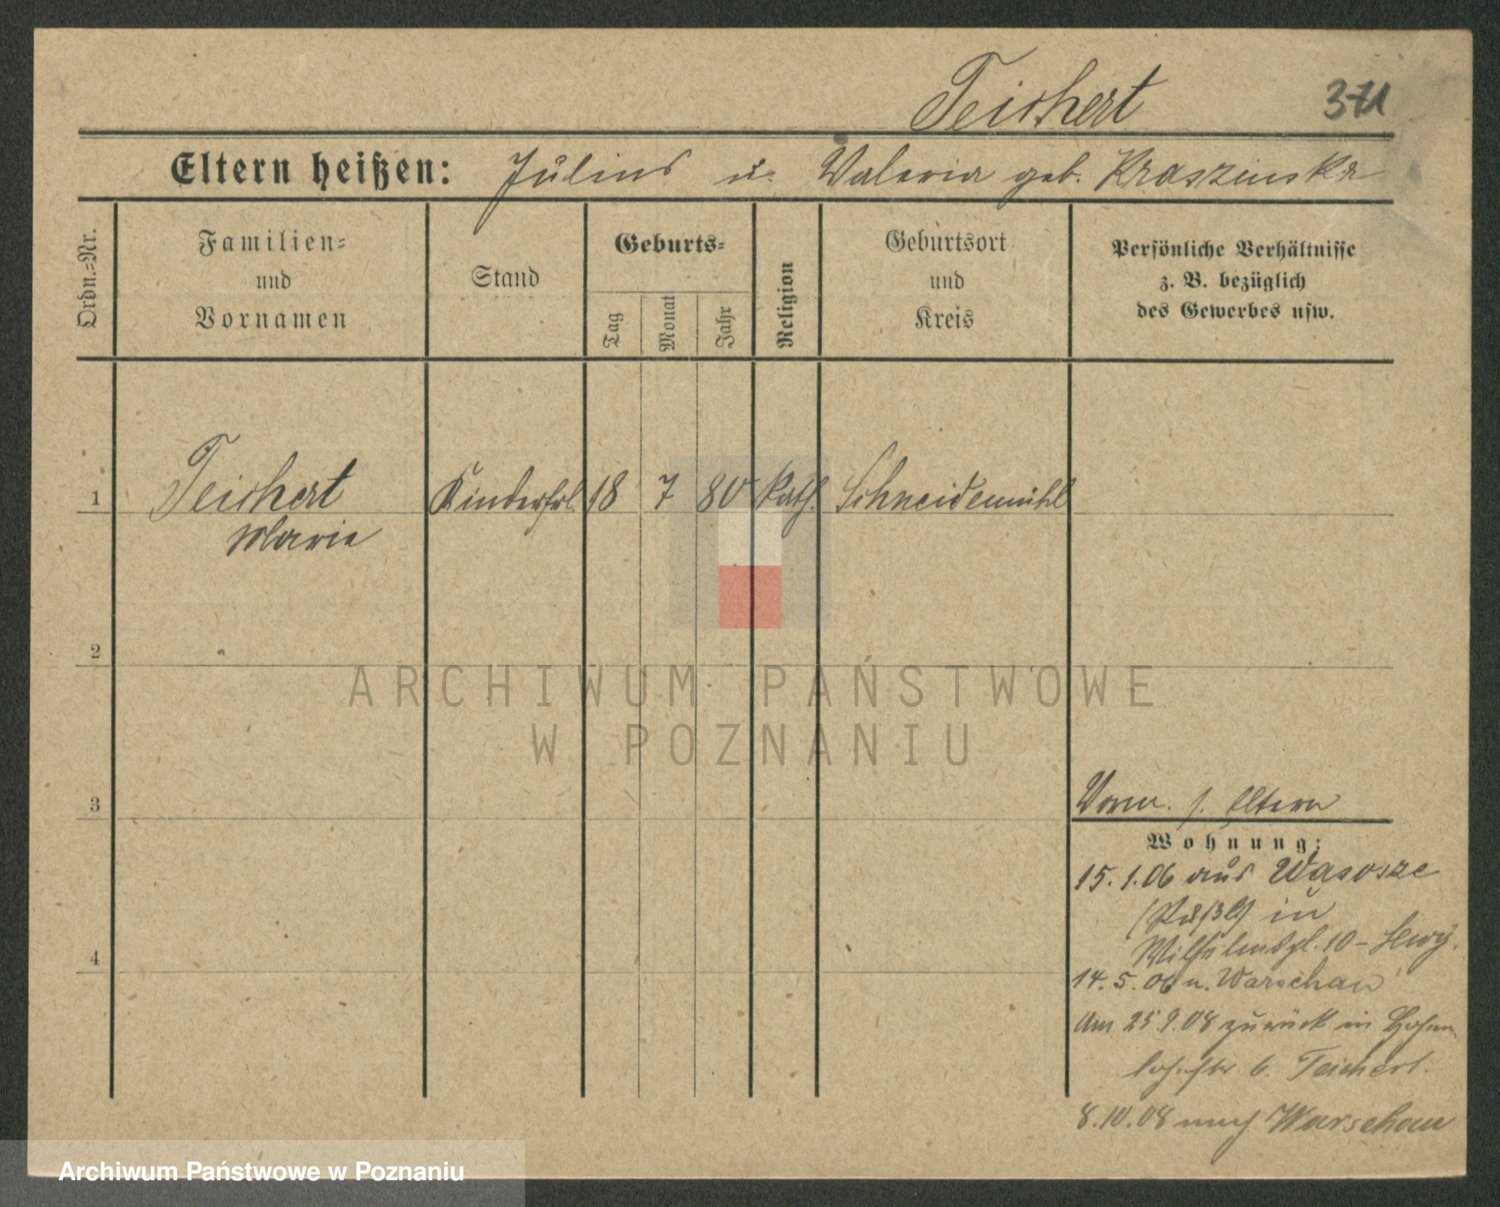 Teichert
Eltern heißen: Julius u. Valeria geb. Kraszinska
Ordn.=Nr.
Familien=
und
Vornamen
Stand
Geburts=
Tag
Monat
Jahr
Religion
Geburtsort
und
Kreis
Persönliche Verhältnisse
z. B. bezüglich
des Gewerbes usw.
1 Teichert Kinderfrl. 18 7 80 kath. Schneidemühl
Marie
2
ARCHIWUM PAŃSTWOWE
W POZNANIU
3
Vorm. s. Eltern
Wohnung:
15.1.06 aus Wasosze
in
Wilhelmspl. 10 -
4
14.5.06 n. Warschau
Am 25 9.08 zurück in Hohen
lohestr 6. Teichert.
8.10.08 nach Warschau
Archiwum Państwowe w Poznaniu